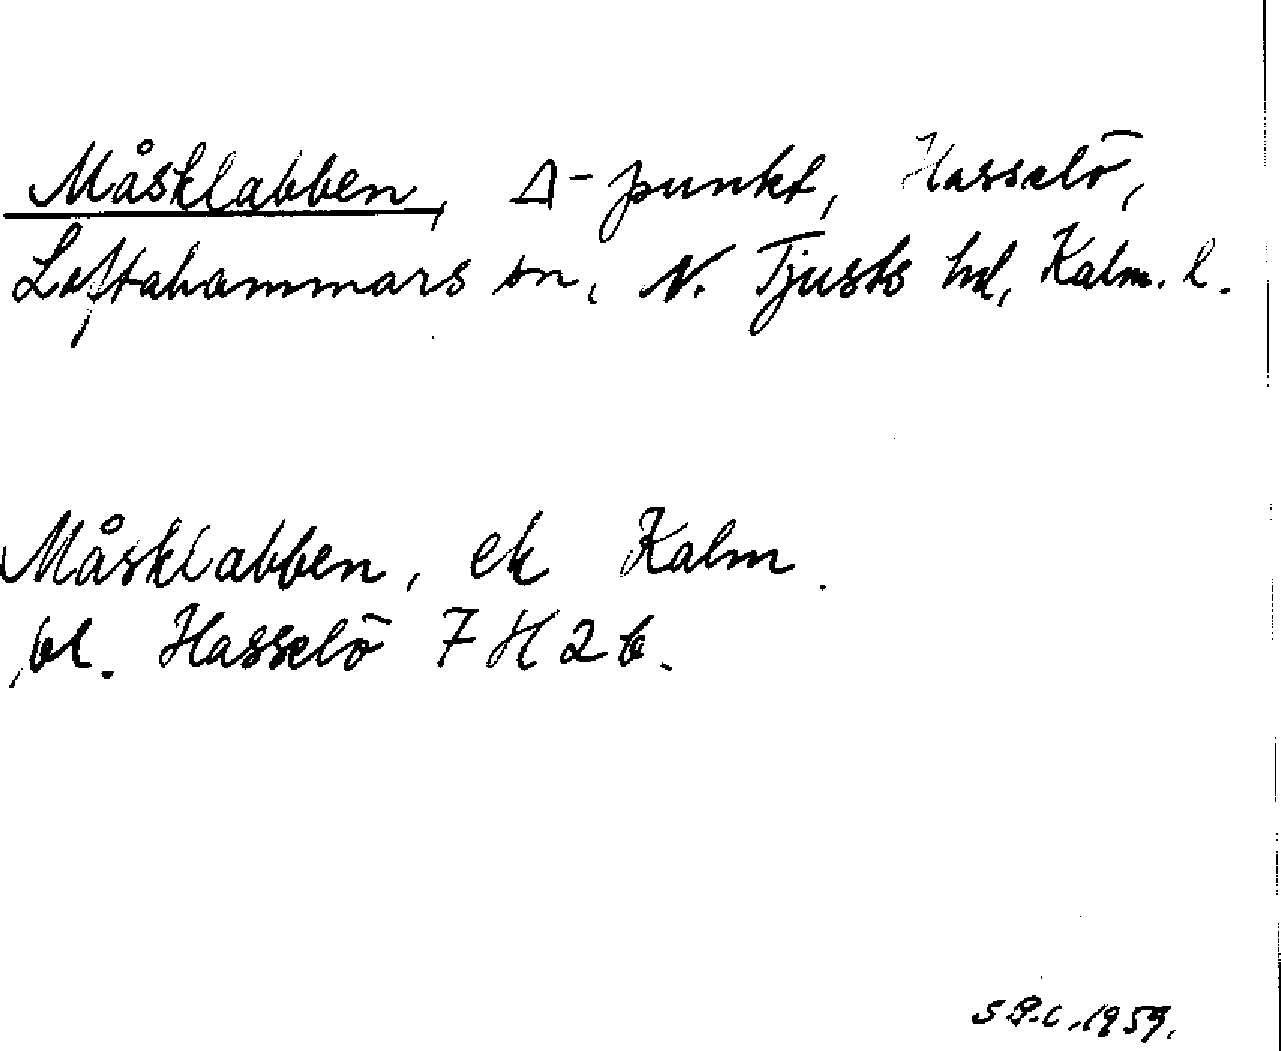 Måsklabben, Δ-punkt, Hasselö,
Loftahammars sn, N. Tjusts hd, Kalm. l.
Måsklabben, ek Kalm.
bl. Hasselö 7 H 2 b.
1959.